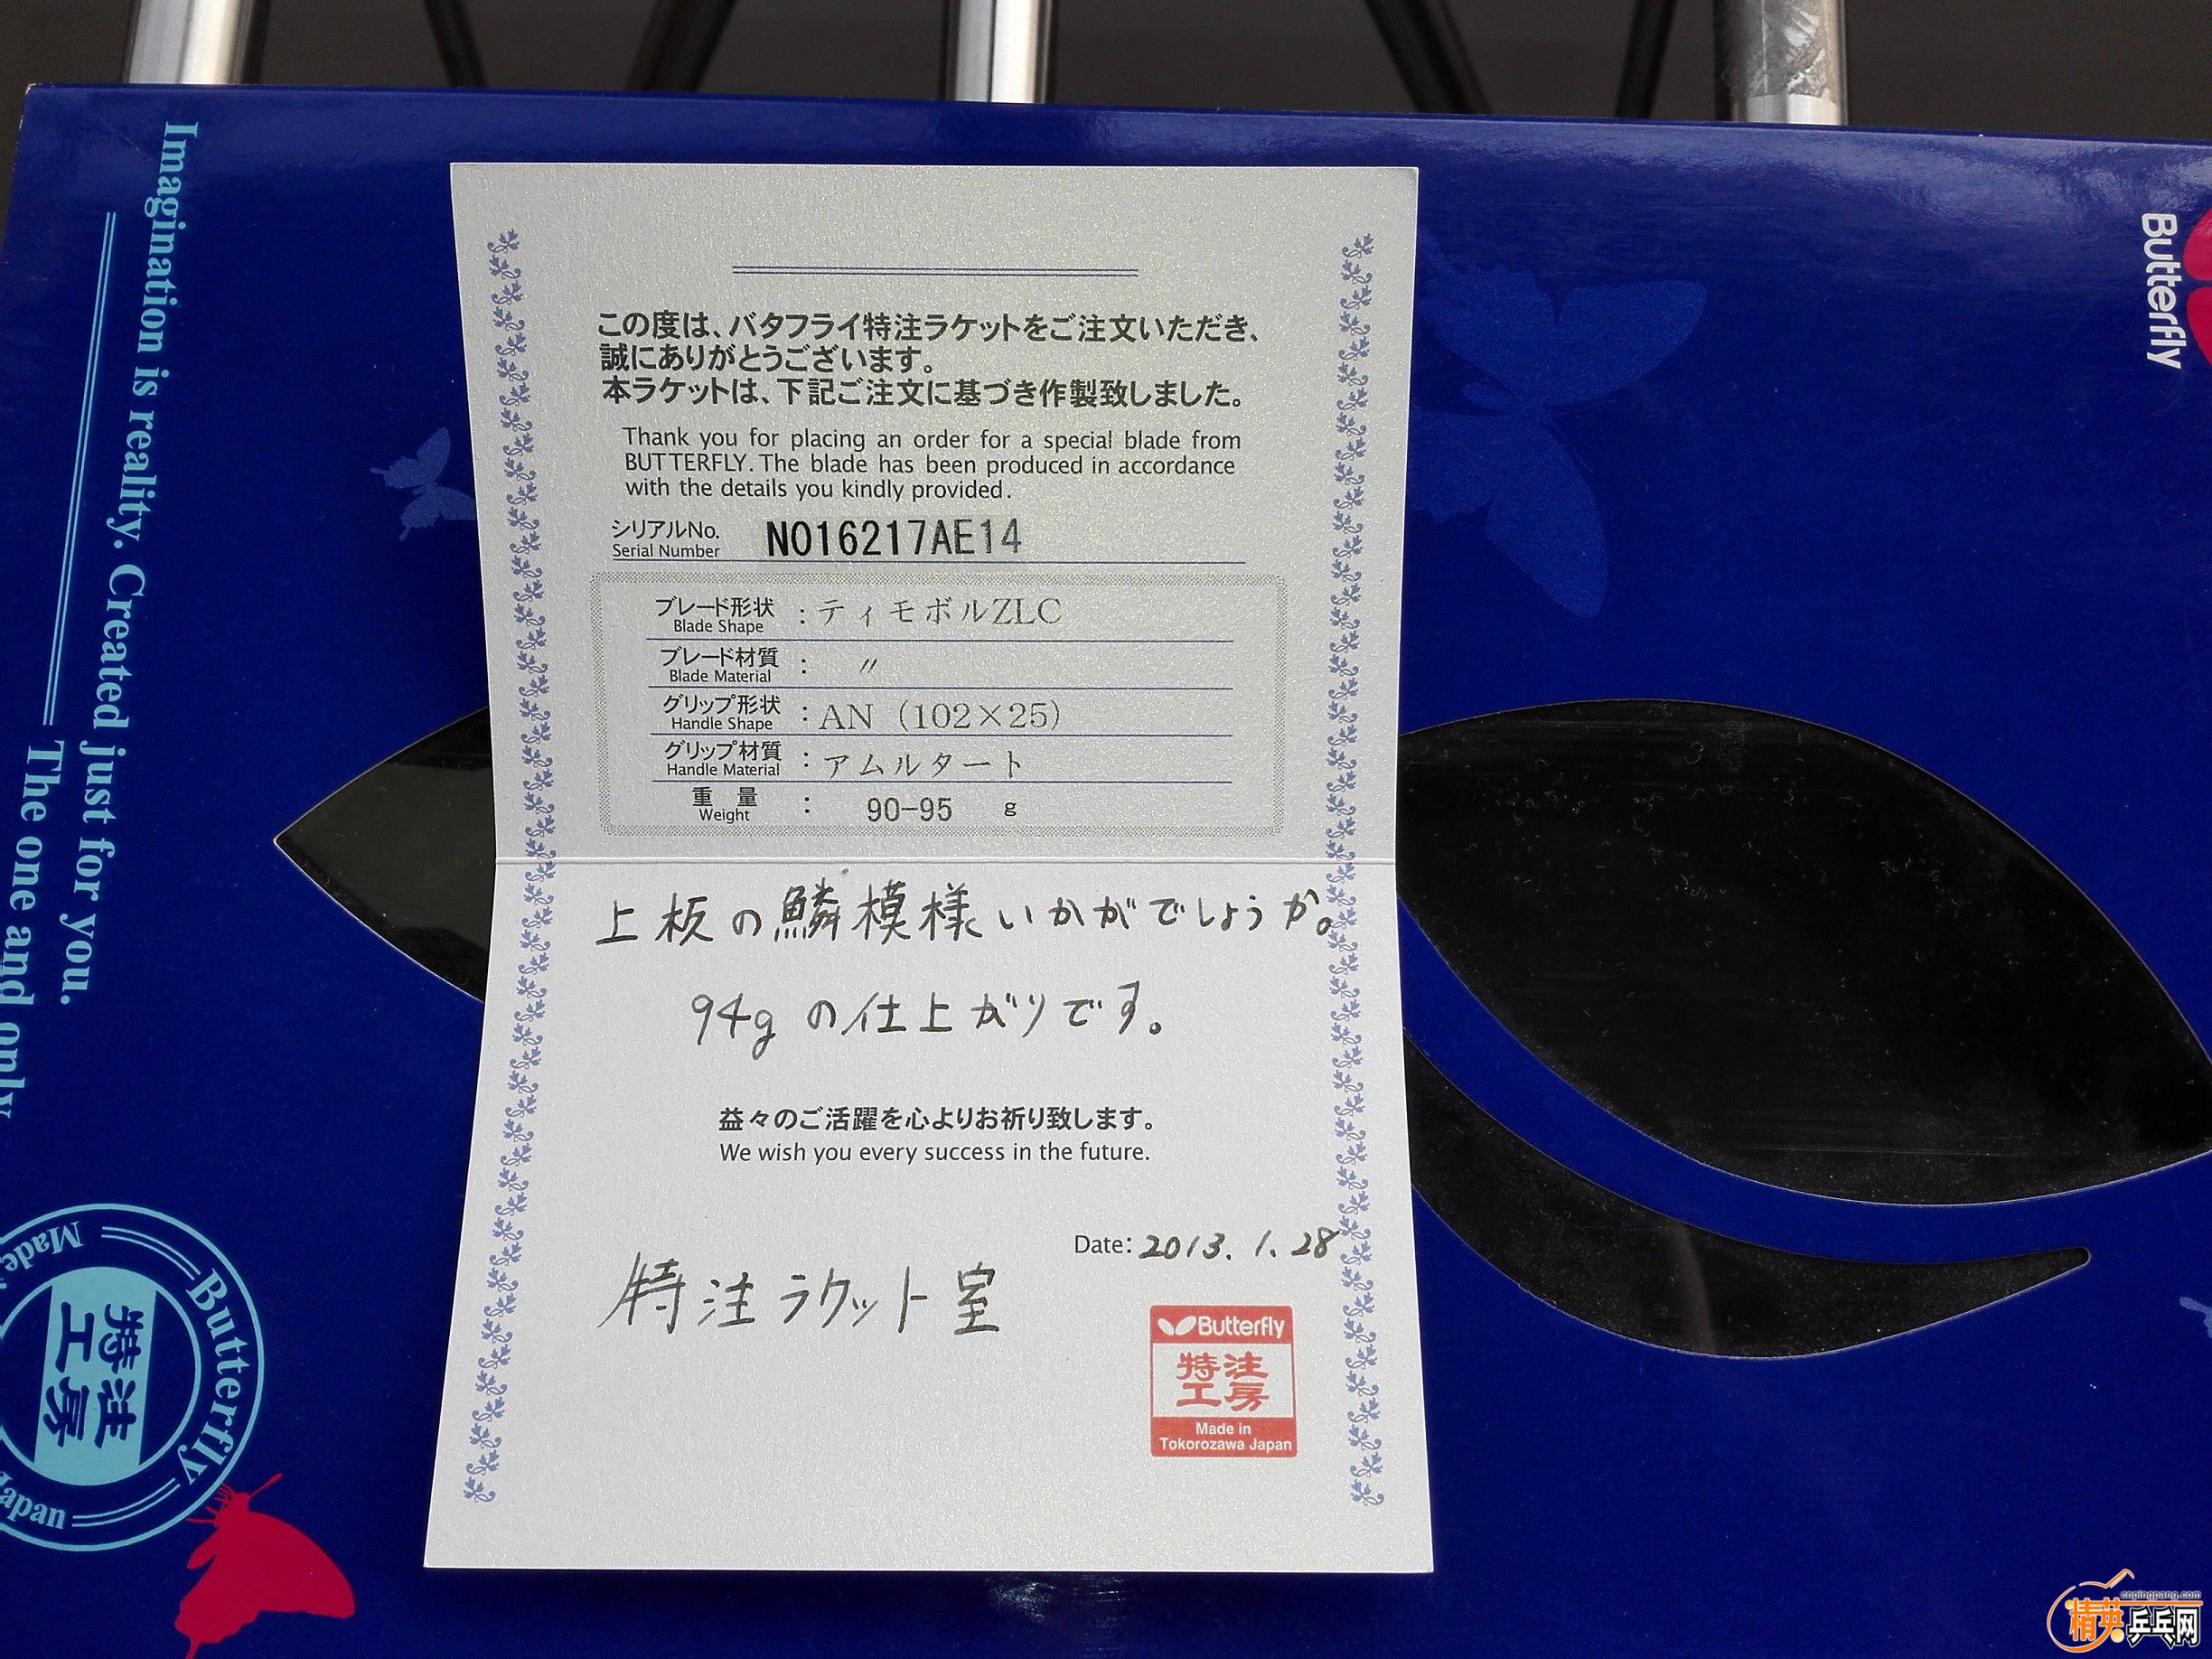 Imagination is reality. Created just for you.
The one and only
Butterfly
この度は、バタフライ特注ラケットをご注文いただき、
誠にありがとうございます。
本ラケットは、下記ご注文に基づき作製致しました。
Thank you for placing an order for a special blade from
BUTTERFLY. The blade has been produced in accordance
with the details you kindly provided.
シリアルNo. NO16217AE14
Serial Number
ブレード形状 : ティモボルZLC
Blade Shape
ブレード材質 : 〃
Blade Material
グリップ形状 : AN (102×25)
Handle Shape
グリップ材質 : アムルタート
Handle Material
重量 : 90-95 g
Weight
上板の鱗模様いかがでしょうか。
94gの仕上がりです。
益々のご活躍を心よりお祈り致します。
We wish you every success in the future.
Date: 2013. 1. 28
特注ラケット室
Butterfly
特注
工房
Made in
Tokorozawa Japan
Butterfly
特注
工房
Made
Japan
cnpingpang.com
精英乒乓网